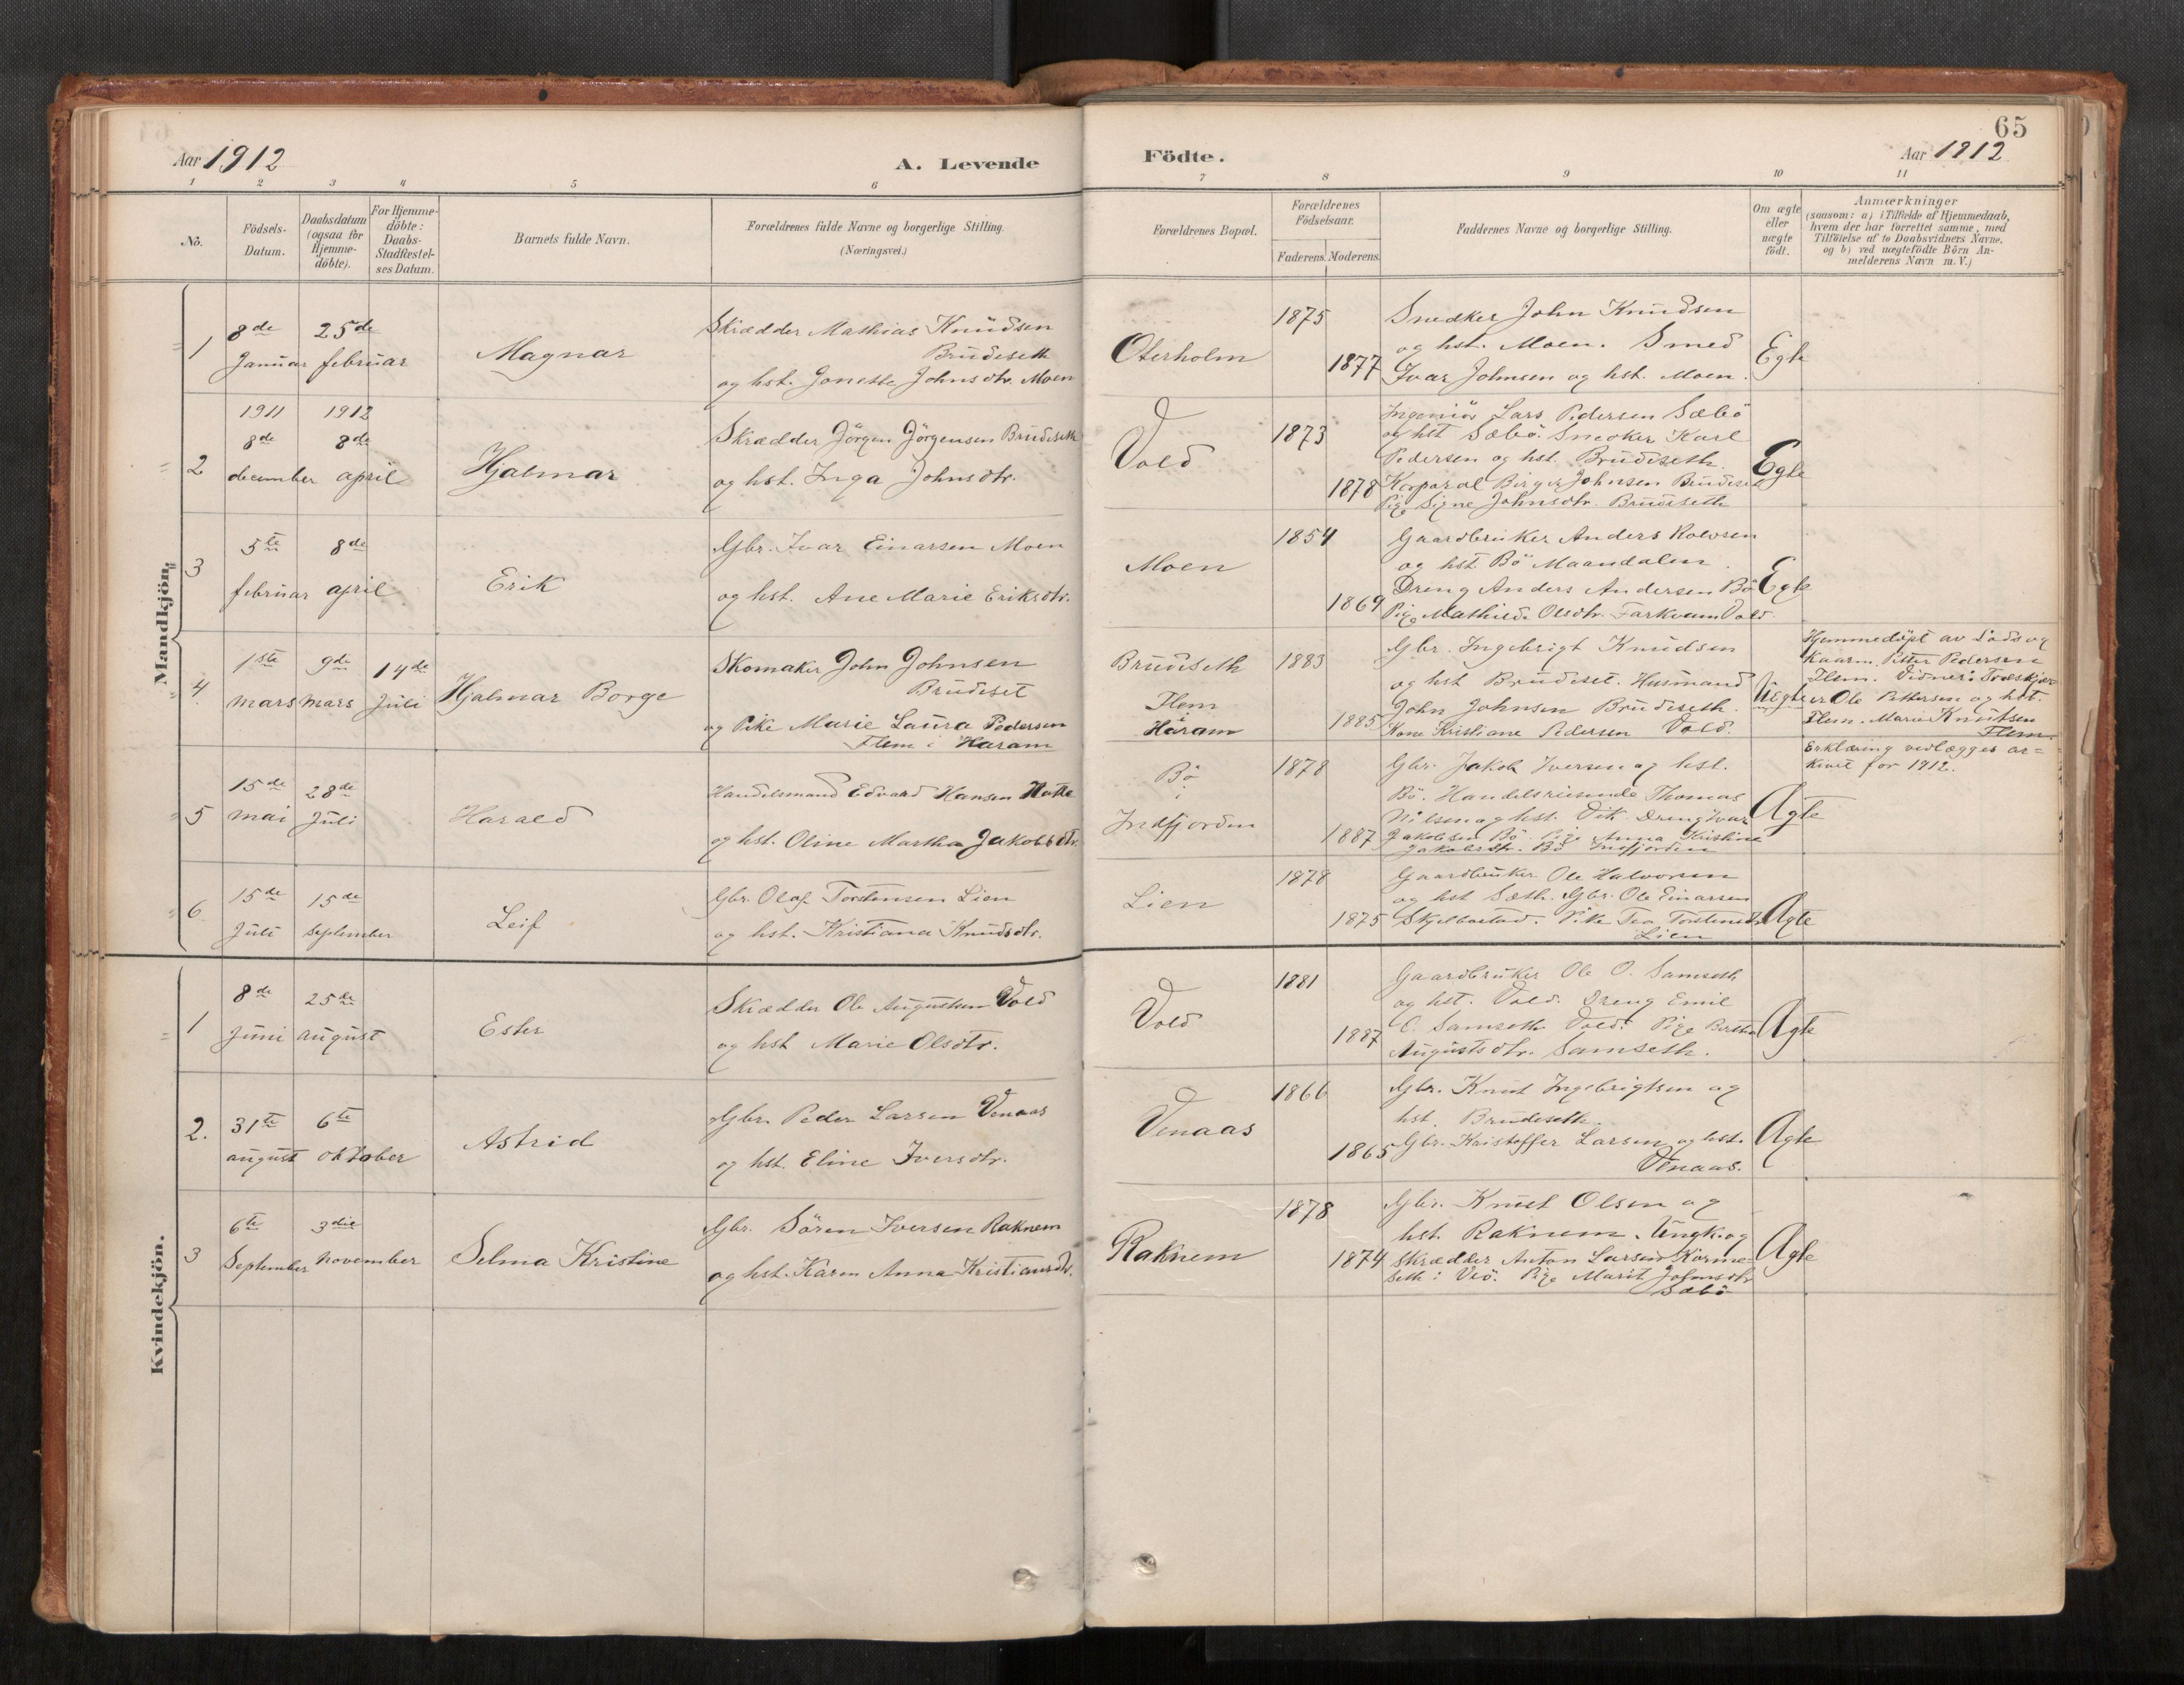 65
Aar 1912
A. Levende
Födte.
Aar 1912
1 2 3 4 5 6 7 8 9 10 11
No.
Födsels-
Datum.
Daabsdatum
(ogsaa for
Hjemme-
döbte).
For Hjemme-
döbte:
Daabs-
Stadfestel-
ses Datum.
Barnets fulde Navn.
Forældrenes fulde Navne og borgerlige Stilling.
(Næringsvei.)
Forældrenes Bopæl.
Forældrenes
Födselsaar.
Faderens. Moderens.
Faddernes Navne og borgerlige Stilling.
Om ægte
eller
uægte
födt.
Anmærkninger
(saasom: a) i Tilfælde af Hjemmedaab,
hvem der har forrettet samme, med
Tilföielse af to Daabsvidners Navne,
og b) ved uægtefödte Börn An-
melderens Navn m. V.)
Mandkjön.
1
8de
Januar
25de
februar
Magnar
Skrædder Mathias Knudsen
Brudeseth
og hst. Jonette Johnsdtr. Moen
Oterholm
1875
1877
Snedker John Knudsen
og hst. Moen. Smed
Ivar Johnsen og hst. Moen.
Egte
2
1911
8de
december
1912
8de
april
Hjalmar
Skrædder Jörgen Jörgensen Brudeseth
og hst. Inga Johnsdtr.
Vold
1873
1878
Ingeniör Lars Pedersen Sæbö
og hst Sæbö. Snedker Karl
Pedersen og hst. Brudeseth
Korporal Birger Johnsen Brudeset
Pige Signe Johnsdtr. Brudeseth
Egte
3
5te
februar
8de
april
Erik
Gbr. Ivar Einarsen Moen
og hst. Ane Marie Eriksdtr.
Moen
1854
1869
Gaardbruker Anders Rolvsen
og hst Bö Maandalen.
Dreng Anders Andersen Bö
Pige Mathilde Olsdtr. Farkvam Vold
Egte
4
1ste
mars
9de
mars
14de
Juli
Hjalmar Borge
Skomaker John Johnsen
Brudeset
og Pike Marie Laura Pedersen
Flem i Haram
Brudeseth
Flem
i
Haram
1883
1885
Gbr. Ingebrigt Knudsen
og hst Brudeset. Husmand
John Johnsen Brudeseth.
Kone Kristiane Pedersen Vold.
Uegte
Hjemmedöpt av
Petter Pedersen
Flem. Vidner:
Ole Pettersen og hst.
Flem. Marie Knutsen
Flem.
Erklæring vedlægges ar=
kivet for 1912.
5
15de
mai
28de
Juli
Harald
Handelsmand Edvard Hansen
og hst. Oline Martha Jakobsdtr.
Bö
i
Indfjorden
1878
1887
Gbr. Jakob Iversen og hst.
Bö. Handelsreisende Thomas
Nilsen og hst. Vik. Dreng Ivar
Jakobsen Bö. Pige Anna Kristine
Jakobsdtr. Bö Indfjorden
Ægte
6
15de
Juli
15de
September
Leif
Gbr. Olaf Torstensen Lien
og hst. Kristiana Knudsdtr.
Lien
1878
1875
Gaardbruker Ole Halvorsen
og hst Sæth. Gbr. Ole Einarsen
Skjelbostad. Pike Tea Torstensdtr
Lien
Ægte
Kvindekjön.
1
8de
Juni
25de
august
Ester
Skrædder Ole Augustsen Vold
og hst Marie Olsdtr.
Vold
1881
1887
Gaardbruker Ole O. Samseth
og hst. Vold. Dreng Emil
O. Samseth Vold. Pige Bertha
Augustsdtr. Samseth.
Ægte
2.
31te
august
6te
oktober
Astrid
Gbr. Peder Larsen Venaas
og hst. Eline Iversdtr.
Venaas
1866
1865
Gbr. Knut Ingebrigtsen og
hst. Brudeseth.
Gbr. Kristoffer Larsen og hst.
Venaas.
Ægte
3
6te
September
3die
november
Selma Kristine
Gbr. Sören Iversen Raknem
og hst. Karen Anna Kristiansdtr.
Raknem
1878
1874
Gbr. Knut Olsen og
hst. Raknem. Ungk. og
Skrædder Anton Larsen Korme
seth i Veö. Pige Marit Johnsdtr
Sæbö
Ægte